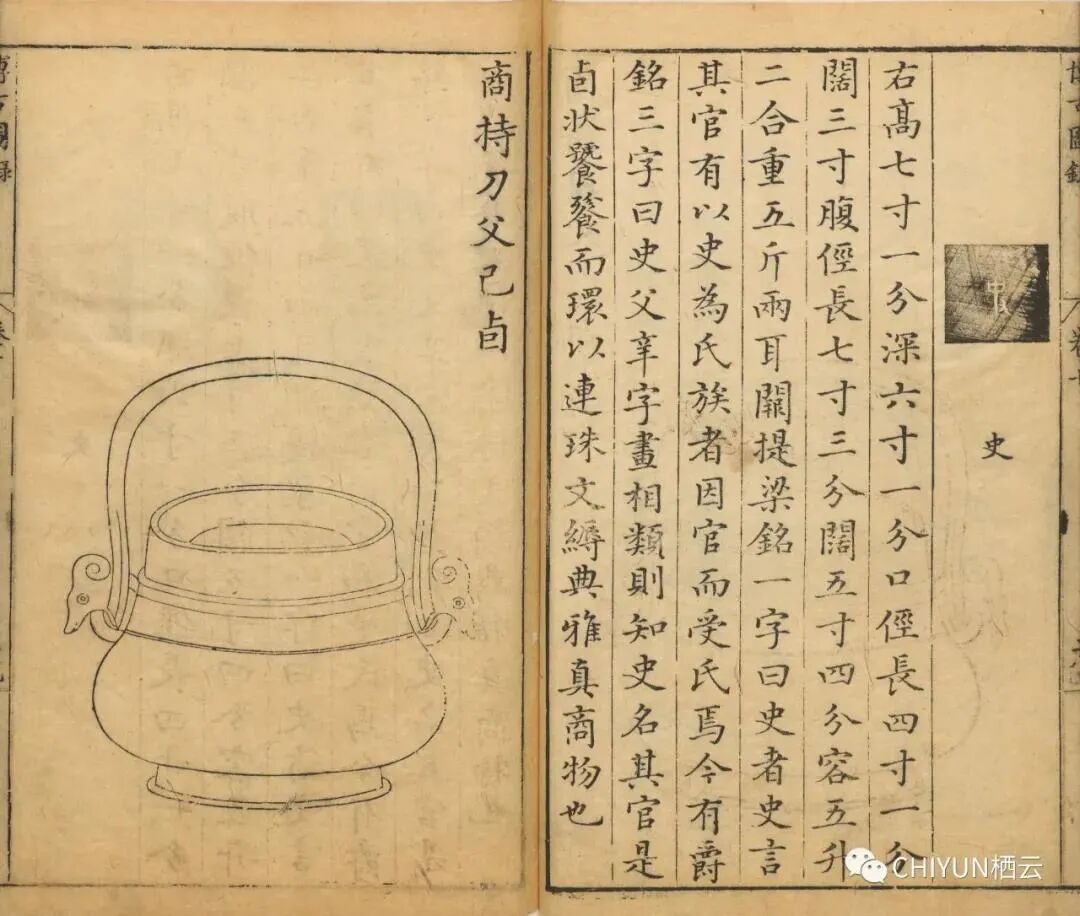 史
右高七寸一分深六寸一分口俓長四寸一分
闊三寸腹俓長七寸三分闊五寸四分容五升
二合重五斤兩耳闗提梁銘一字曰史者史言
其官有以史為氏族者因官而受氏焉今有爵
銘三字曰史父辛字畫相類則知史名其官是
卣狀饕餮而環以連珠文縟典雅真商物也
商持刀父己卣
博古圖錄
CHIYUN栖云